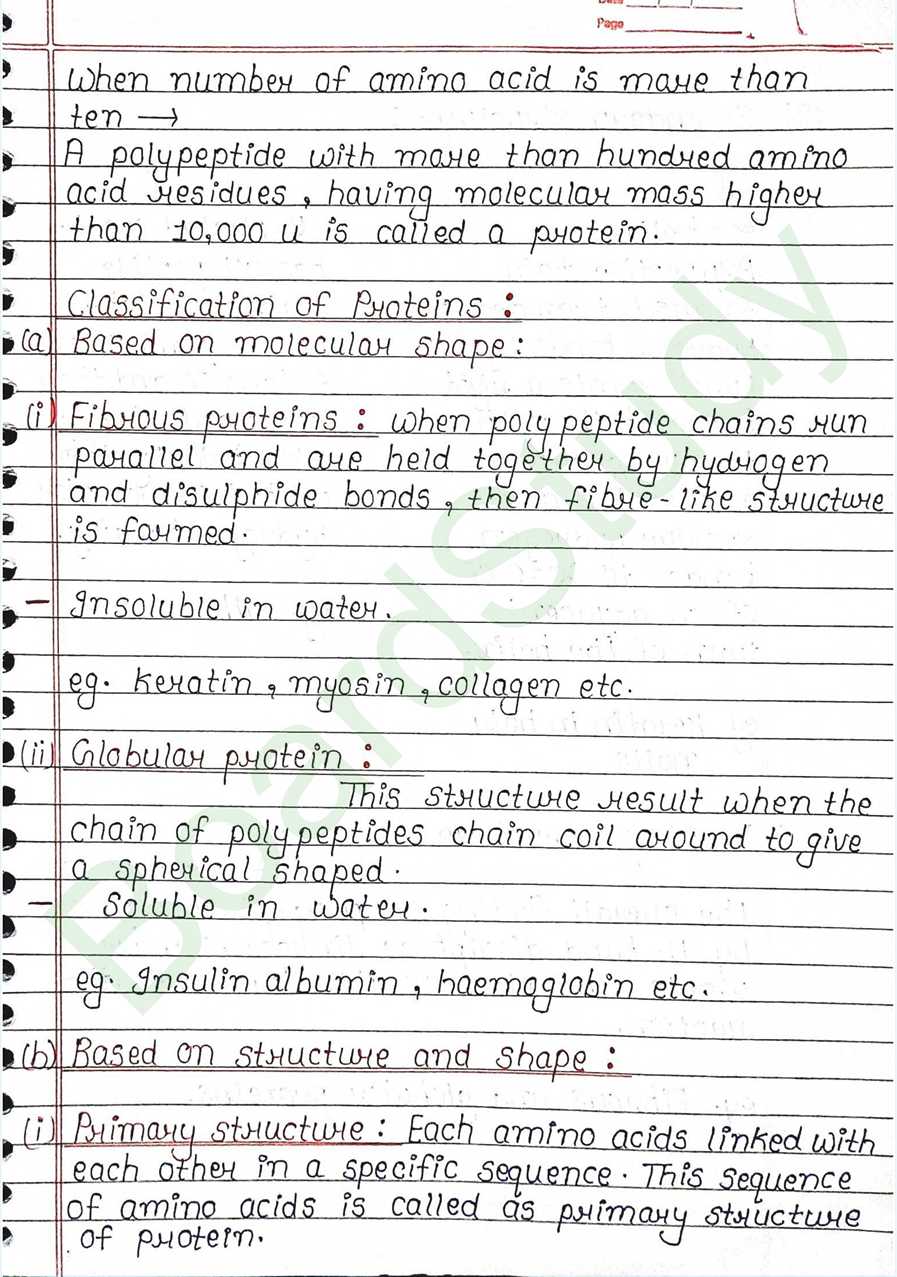 Date
Page
When number of amino acid is more than
ten →
A polypeptide with more than hundred amino
acid residues, having molecular mass higher
than 10,000 u is called a protein.
Classification of Proteins :
(a) Based on molecular shape :
(i) Fibrous proteins : when polypeptide chains run
parallel and are held together by hydrogen
and disulphide bonds, then fibre-like structure
is formed.
– Insoluble in water.
eg. Keratin, myosin, collagen etc.
(ii) Globular protein :
This structure result when the
chain of polypeptides chain coil around to give
a spherical shaped.
– Soluble in water.
eg. Insulin albumin, haemoglobin etc.
(b) Based on structure and shape :
(i) Primary structure : Each amino acids linked with
each other in a specific sequence. This sequence
of amino acids is called as primary structure
of protein.
BoardStudy